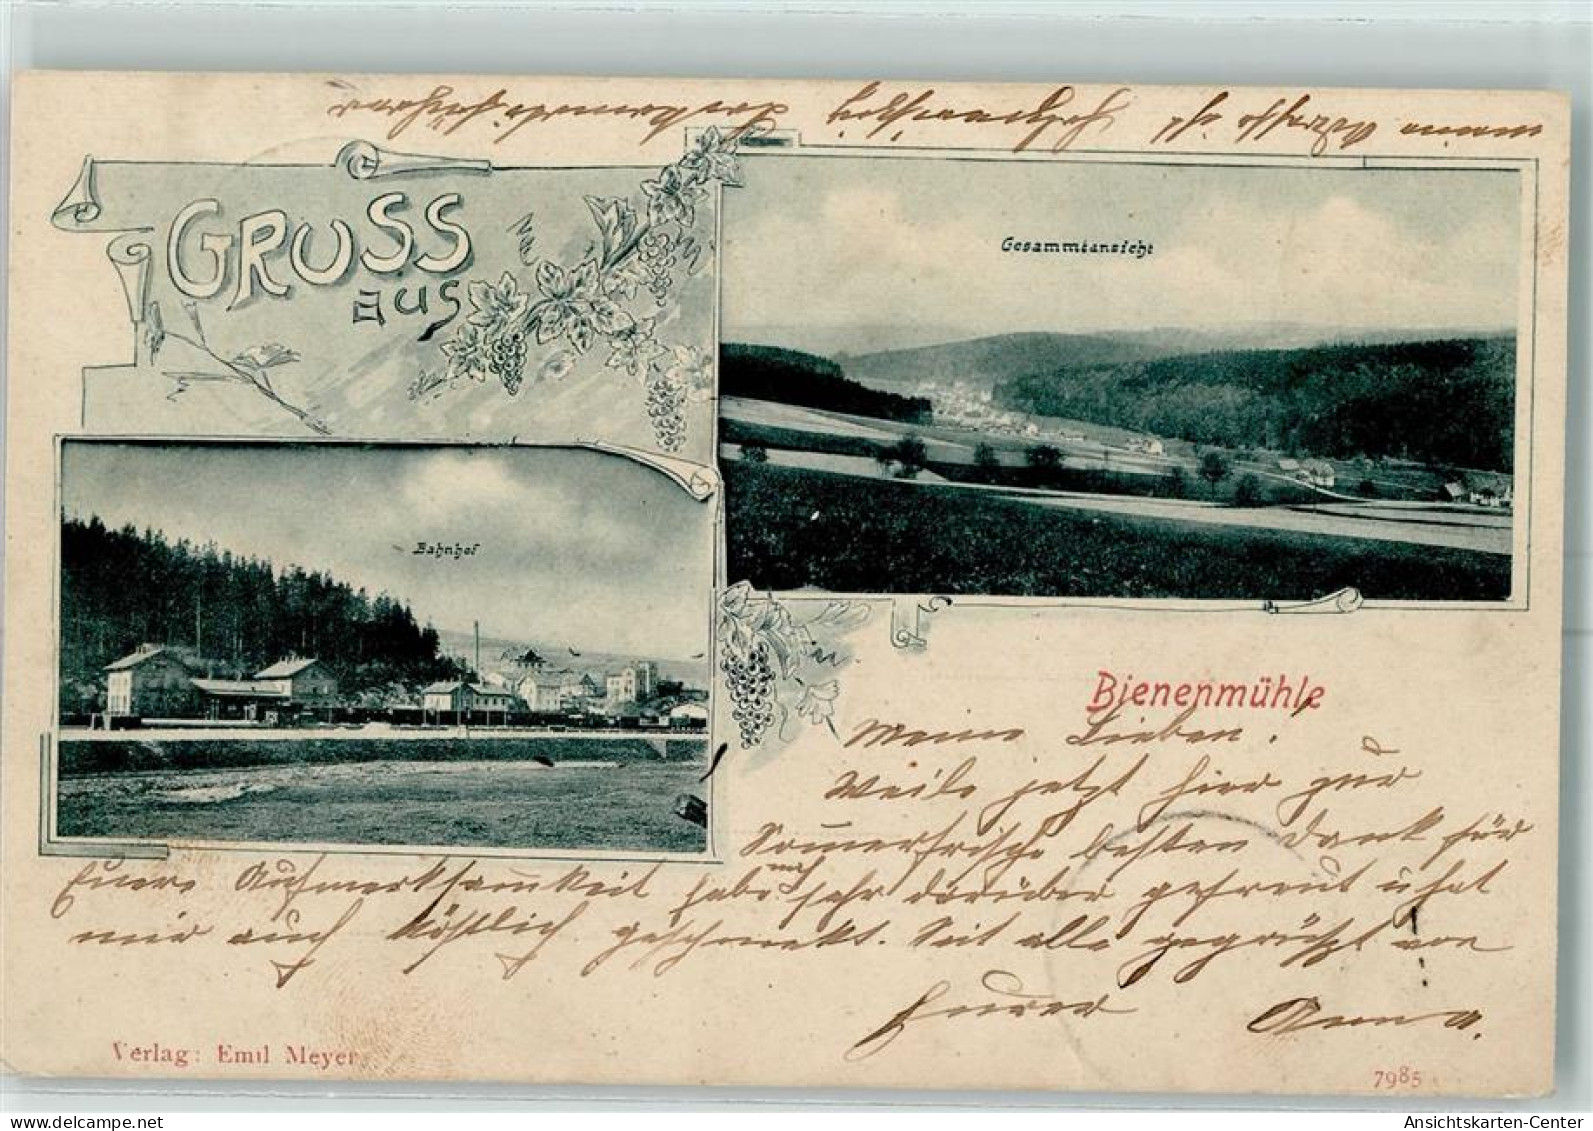 GRUSS
aus
Gesammtansicht
Bahnhof
Bienenmühle
Meine Lieben!
Weile jetzt hier zur
Sommerfrische besten Dank für
Euere Aufmerksamkeit habe mich sehr darüber gefreut u. hat
mir auch köstlich geschmeckt. Seit alle gegrüßt von
Eurer Anna.
meine Adresse ist
Verlag: Emil Meyer
7985
Ansichtskarten-Center